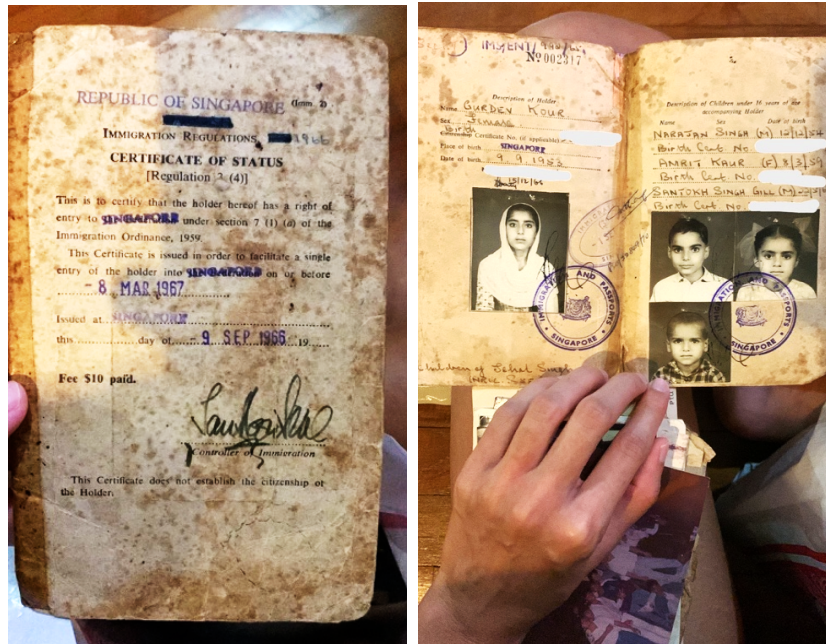 REPUBLIC OF SINGAPORE (Imm. 2)
IMMIGRATION REGULATIONS, 1966
CERTIFICATE OF STATUS
[Regulation 2 (4)]
This is to certify that the holder hereof has a right of
entry to SINGAPORE under section 7 (1) (a) of the
Immigration Ordinance, 1959.
This Certificate is issued in order to facilitate a single
entry of the holder into SINGAPORE on or before
- 8 MAR 1967
Issued at SINGAPORE
this day of - 9 SEP 1966 19
Fee $10 paid.
Controller of Immigration
This Certificate does not establish the citizenship of
the Holder.
IMS/ENT/
No 002317
Description of Holder
Name GURDEV KOUR
Sex Female
Birth
Certificate No. (if applicable)
Place of birth SINGAPORE
Date of birth 9.9.1953
IMMIGRATION AND PASSPORTS
SINGAPORE
Children of Sehal Singh
Description of Children under 16 years of age
accompanying Holder
Name Sex Date of Birth
NARAJAN SINGH (M) 12/12/54
Birth Cert. No.
AMRIT KAUR (F) 8/3/59
Birth Cert. No.
SANTOKH SINGH GILL (M)
Birth Cert. No.
IMMIGRATION AND PASSPORTS
SINGAPORE